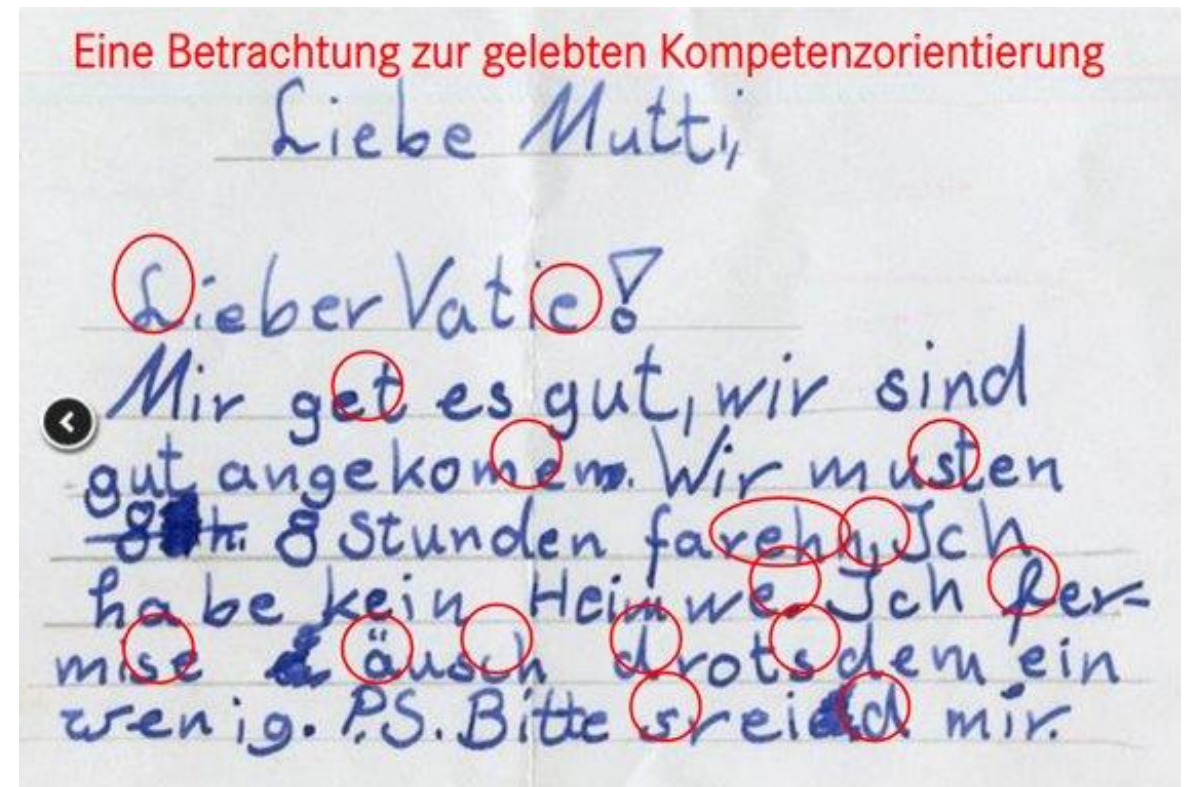 Eine Betrachtung zur gelebten Kompetenzorientierung
Liebe Mutti,
Lieber Vatie!
Mir get es gut, wir sind
gut angekomen. Wir musten
8 Stunden farehn, Ich
habe kein Heimwe. Ich fer-
mise äusch drotsdem ein
wenig. P.S. Bitte sreied mir.